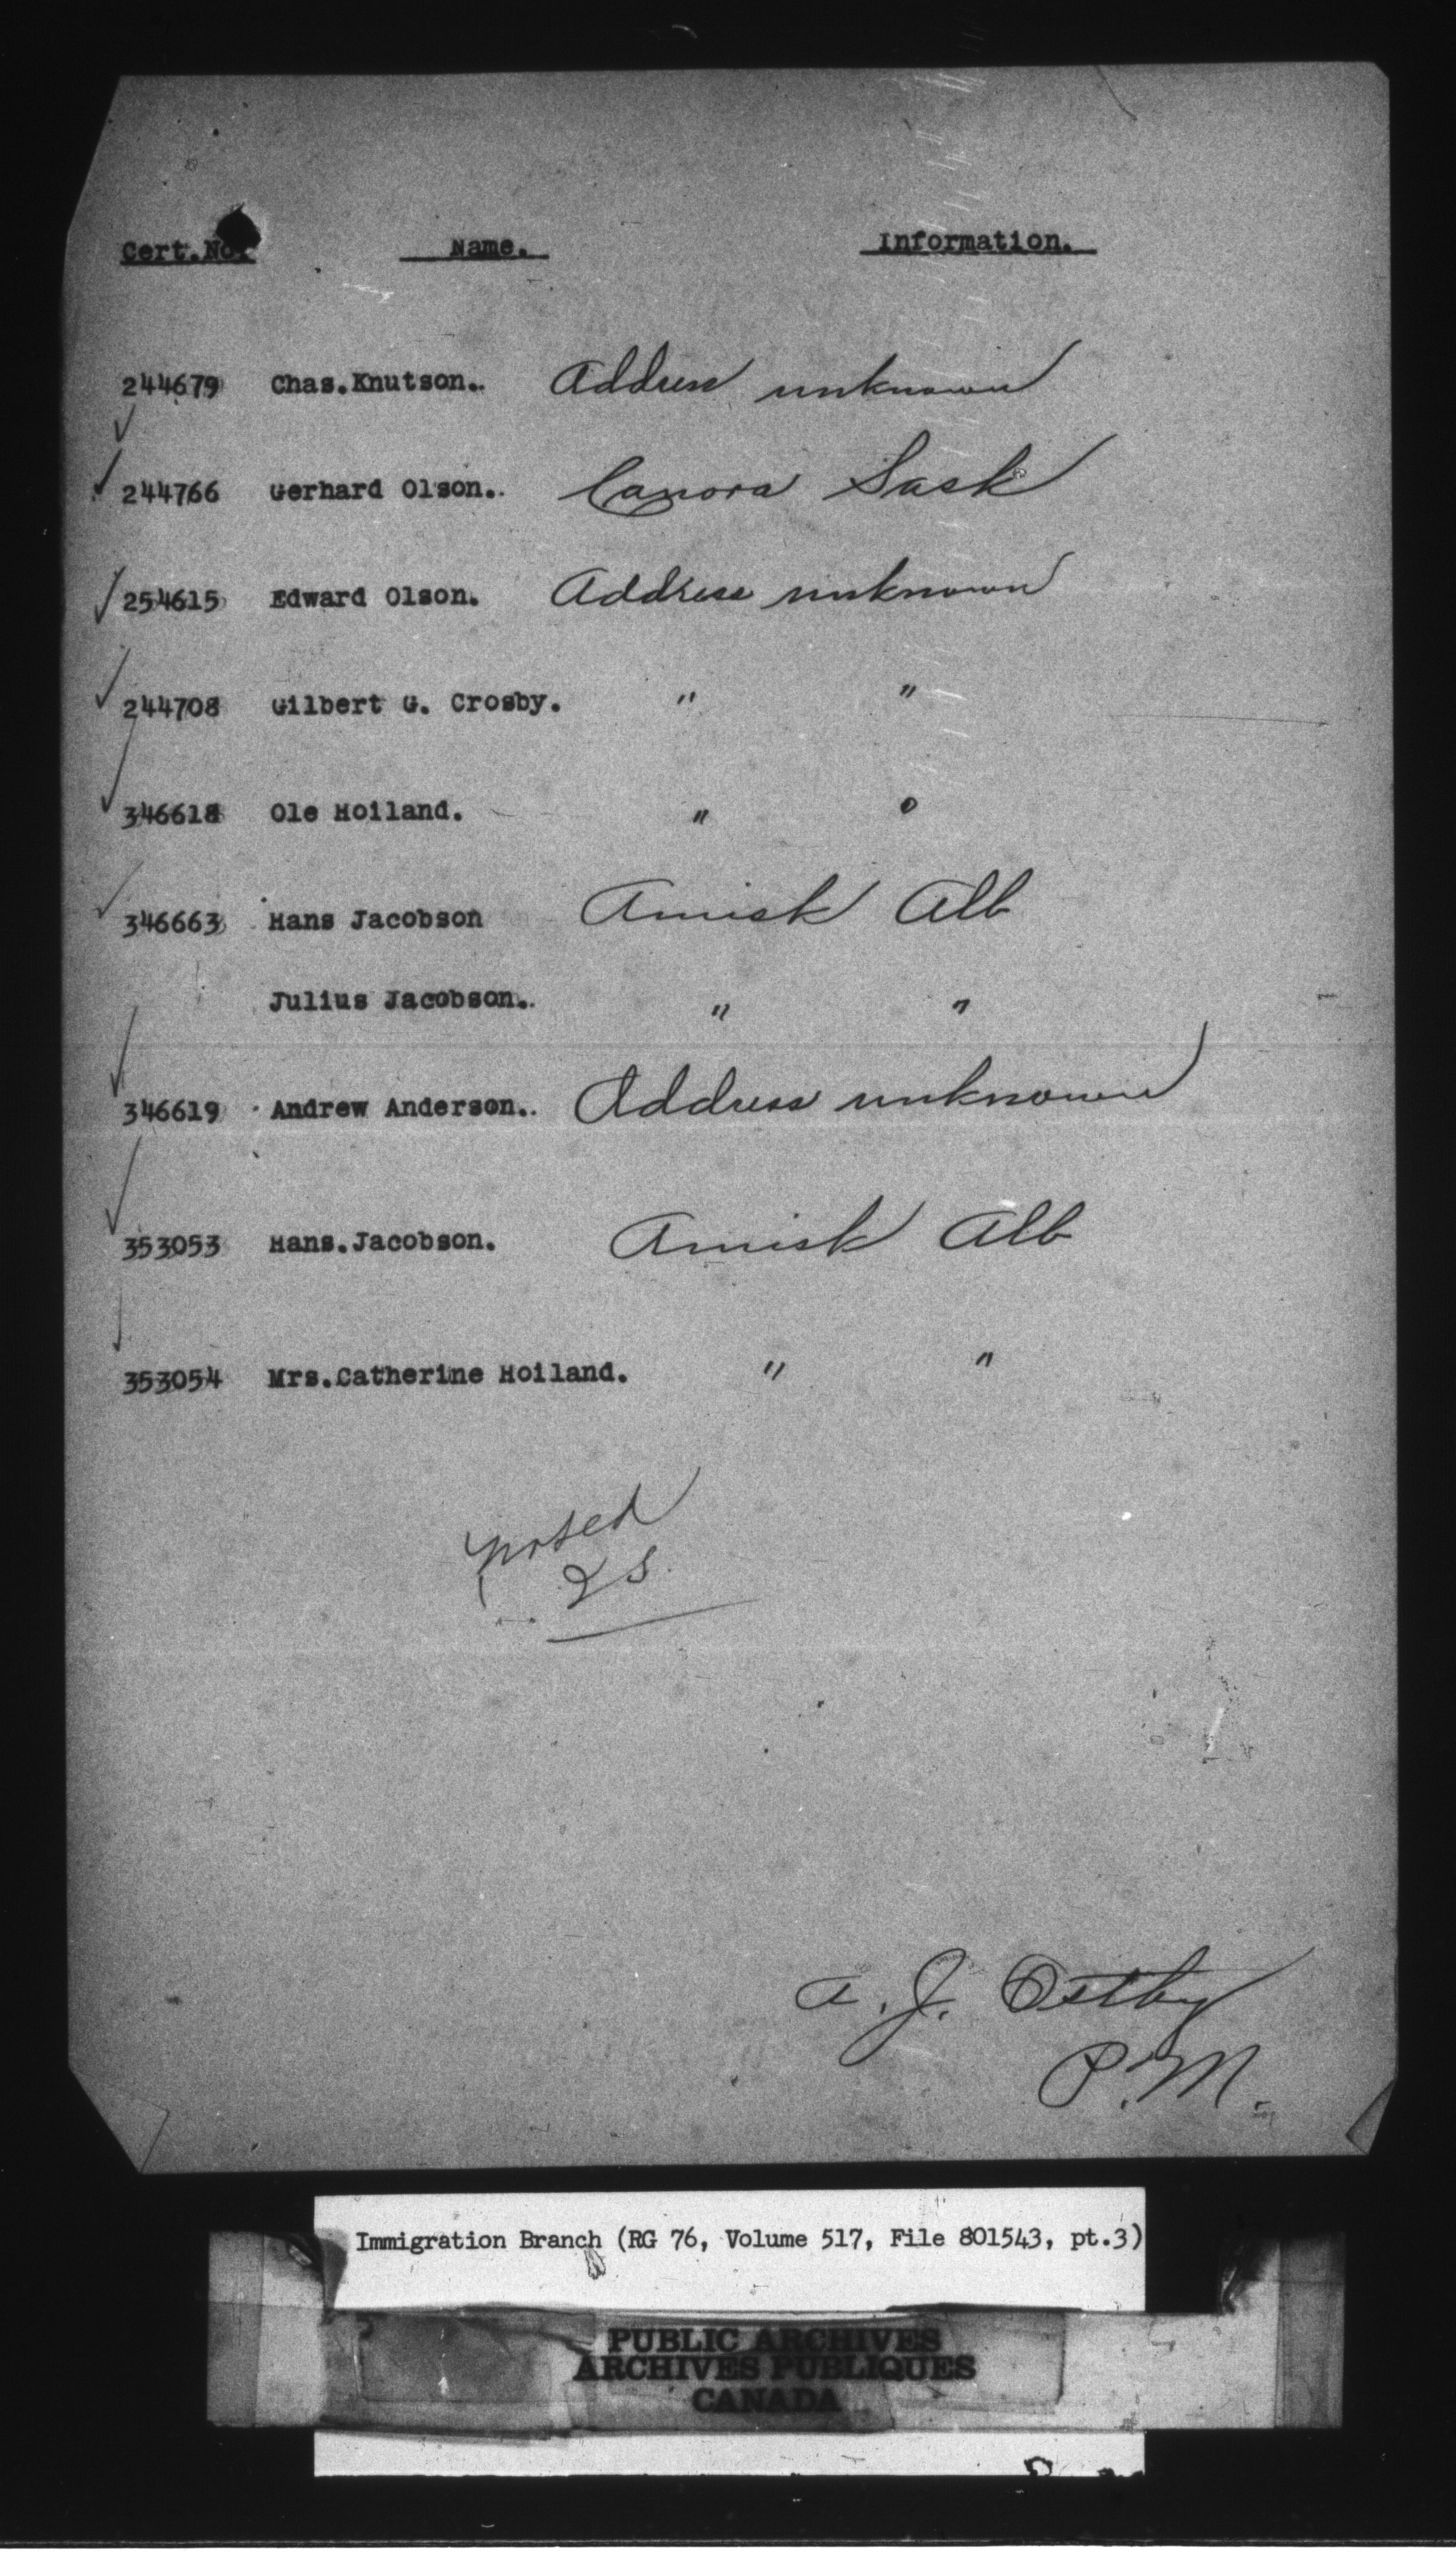 Cert.No. Name. Information.
244679 Chas.Knutson. Address unknown
244766 Gerhard Olson. Canora Sask
254615 Edward Olson. Address unknown
244708 Gilbert G. Crosby. " "
346618 Ole Hoiland. " "
346663 Hans Jacobson Amisk Alb
Julius Jacobson. " "
346619 Andrew Anderson. Address unknown
353053 Hans.Jacobson. Amisk Alb
353054 Mrs.Catherine Hoiland. " "
noted
A. J. Ostby
P.M.
Immigration Branch (RG 76, Volume 517, File 801543, pt.3)
PUBLIC ARCHIVES
ARCHIVES PUBLIQUES
CANADA